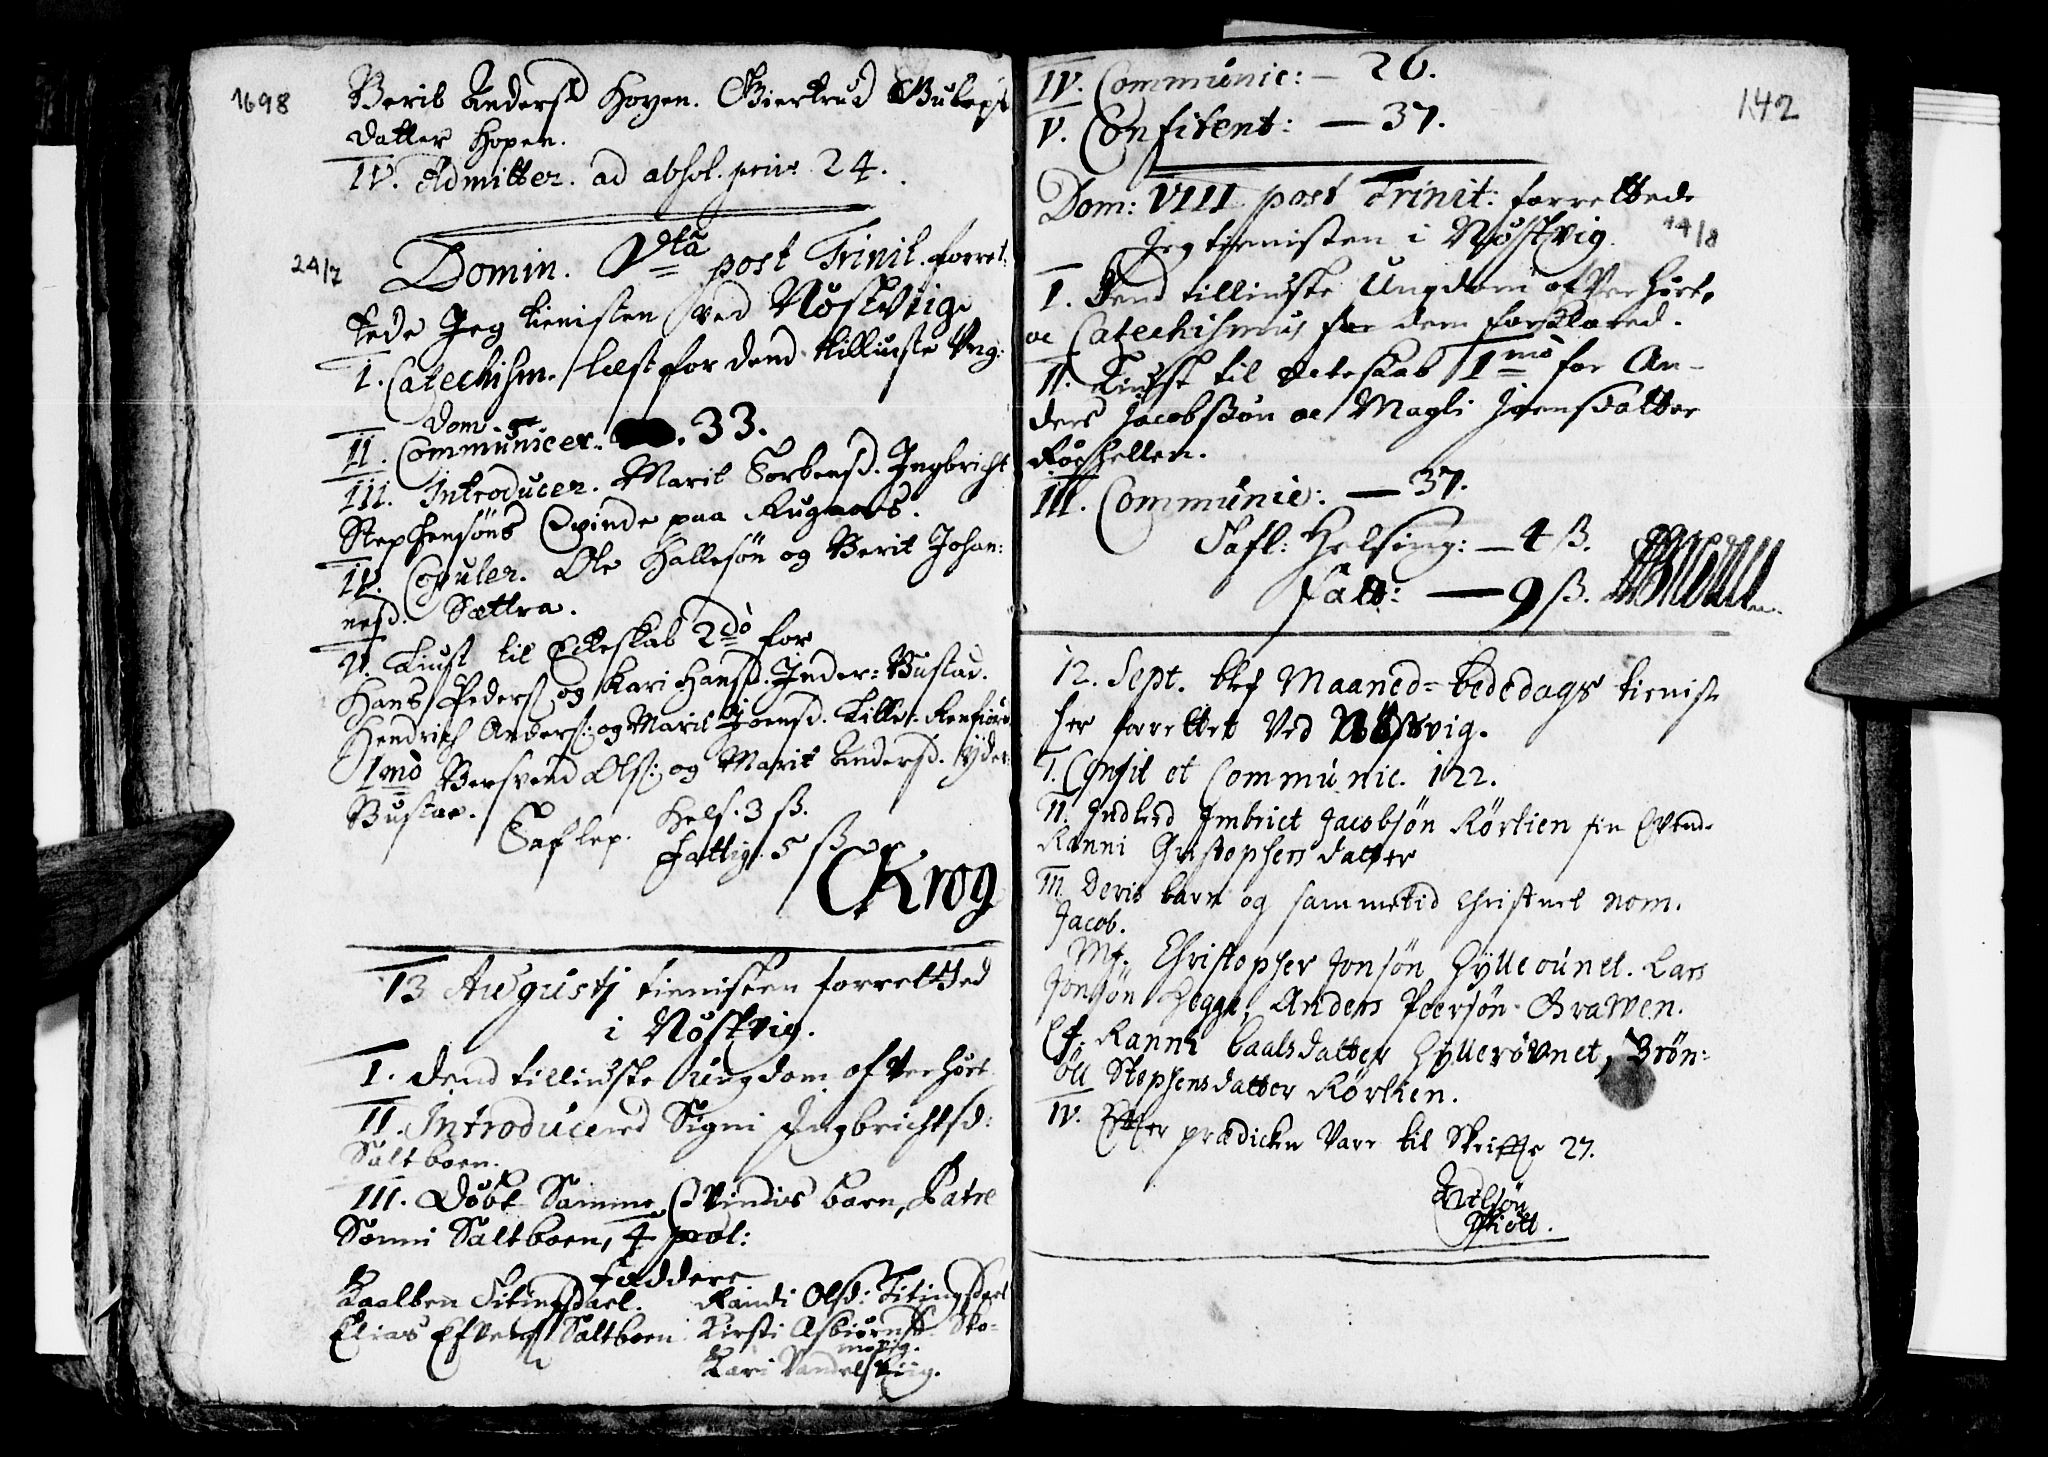 1698
Berit Andersd Hopen. Giertrud Gulleps
datter Hopen.
IV. Admitter. ad absol. priv. 24.
24/7
Domin. Vta post Trinit. forret:
tede Jeg tienisten ved Nøstvig
I. Catechism. læst for dend tilliuste Ung:
dom.
II. Communicer. 33.
III. Introducer. Marit Torbensd. Ingbricht
Stephensøns Qvinde paa Rugaas.
IV. Copuler. Ole Hallesøn og Berit Johan:
nesd. Sættra.
V. Liust til Ecteskab 2dò for
Hans Peders: og Kari Hansd. Inder: Bustad.
Hendrich Anders: og Marit Joensd. Lille:
1mò Bersvend Ols: og Marit Andersd. Yder:
Bustad.
Taflep. Hels. 3 ß.
Fattig. 5 ß
CKrog
13 Augustj tienisten forretted
i Nøstvig.
I. Dend tilliuste ungdom ofverhört
II. Introducered Signi Ingbrichtsd:
Saltboen.
III. Døbt Samme Qvindes barn, Patre
Sønni Saltboen,
Faddere
Kaalben Titingsdael. Randi Olsd: Titingsdael
Elias Saltboen Kirsti Asbiørnsd. Sko-
mvig.
Kari Vandelsviig.
142
IV. Communic: — 26.
V. Confitent: — 37.
Dom: VIII post Trinit: forrettede
Jeg tienisten i Nøstvig. 14/8
I. Dend tilliuste Ungdom ofverhört,
oc Catechismus for dem forklared.
II. Liust til Ecteskab 1mò for An-
ders Jacobsøn oc Magli Joensdatter
Røehellen.
III. Communic: — 37.
Tafl: Helsing: — 4 ß.
fatt: — 9 ß.
12. Sept. blef Maaned-bededags tieniste
her forrettet ved Nøstvig.
I. Confit et Communic. 122.
II. Indled Imbrict Jacobsøn Rörlien sin Qvinde
Ranni Christophersdatter
III. Deris barn og sammetid Christnet nom.
Jacob.
Mf. Christopher Jonsøn Hylleøunet. Lars
Jonsøn Hegge, Anders Peersøn Grawen.
Qf. Ranni Paalsdatter Hyllerövnet, Brön:
öll Stephensdatter Rörlien.
IV. Efter prædicken vare til Skriffte 27.